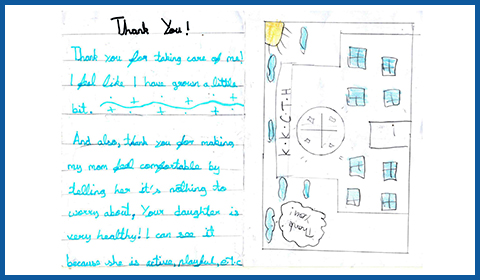 Thank You!
Thank you for taking care of me!
I feel like I have grown a little
bit.
And also, thank you for making
my mom feel comfortable by
telling her it's nothing to
worry about, Your daughter is
very healthy! I can see it
because she is active, playful, e.t.c
K.K.C.T.H
Thank
You!